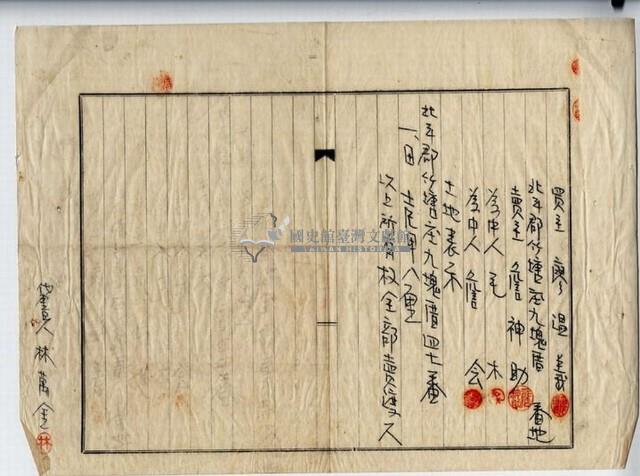 買主 廖温義
北斗郡竹塘庄九塊厝 番地
賣主 詹神助
為中人 毛 木
為中人 詹 会
土地表示
北斗郡竹塘庄九塊厝四七番
一、田 八厘
以上所有权全部賣渡又
代書人 林萬金
林
國史館臺灣文獻館
TAIWAN HISTORICA